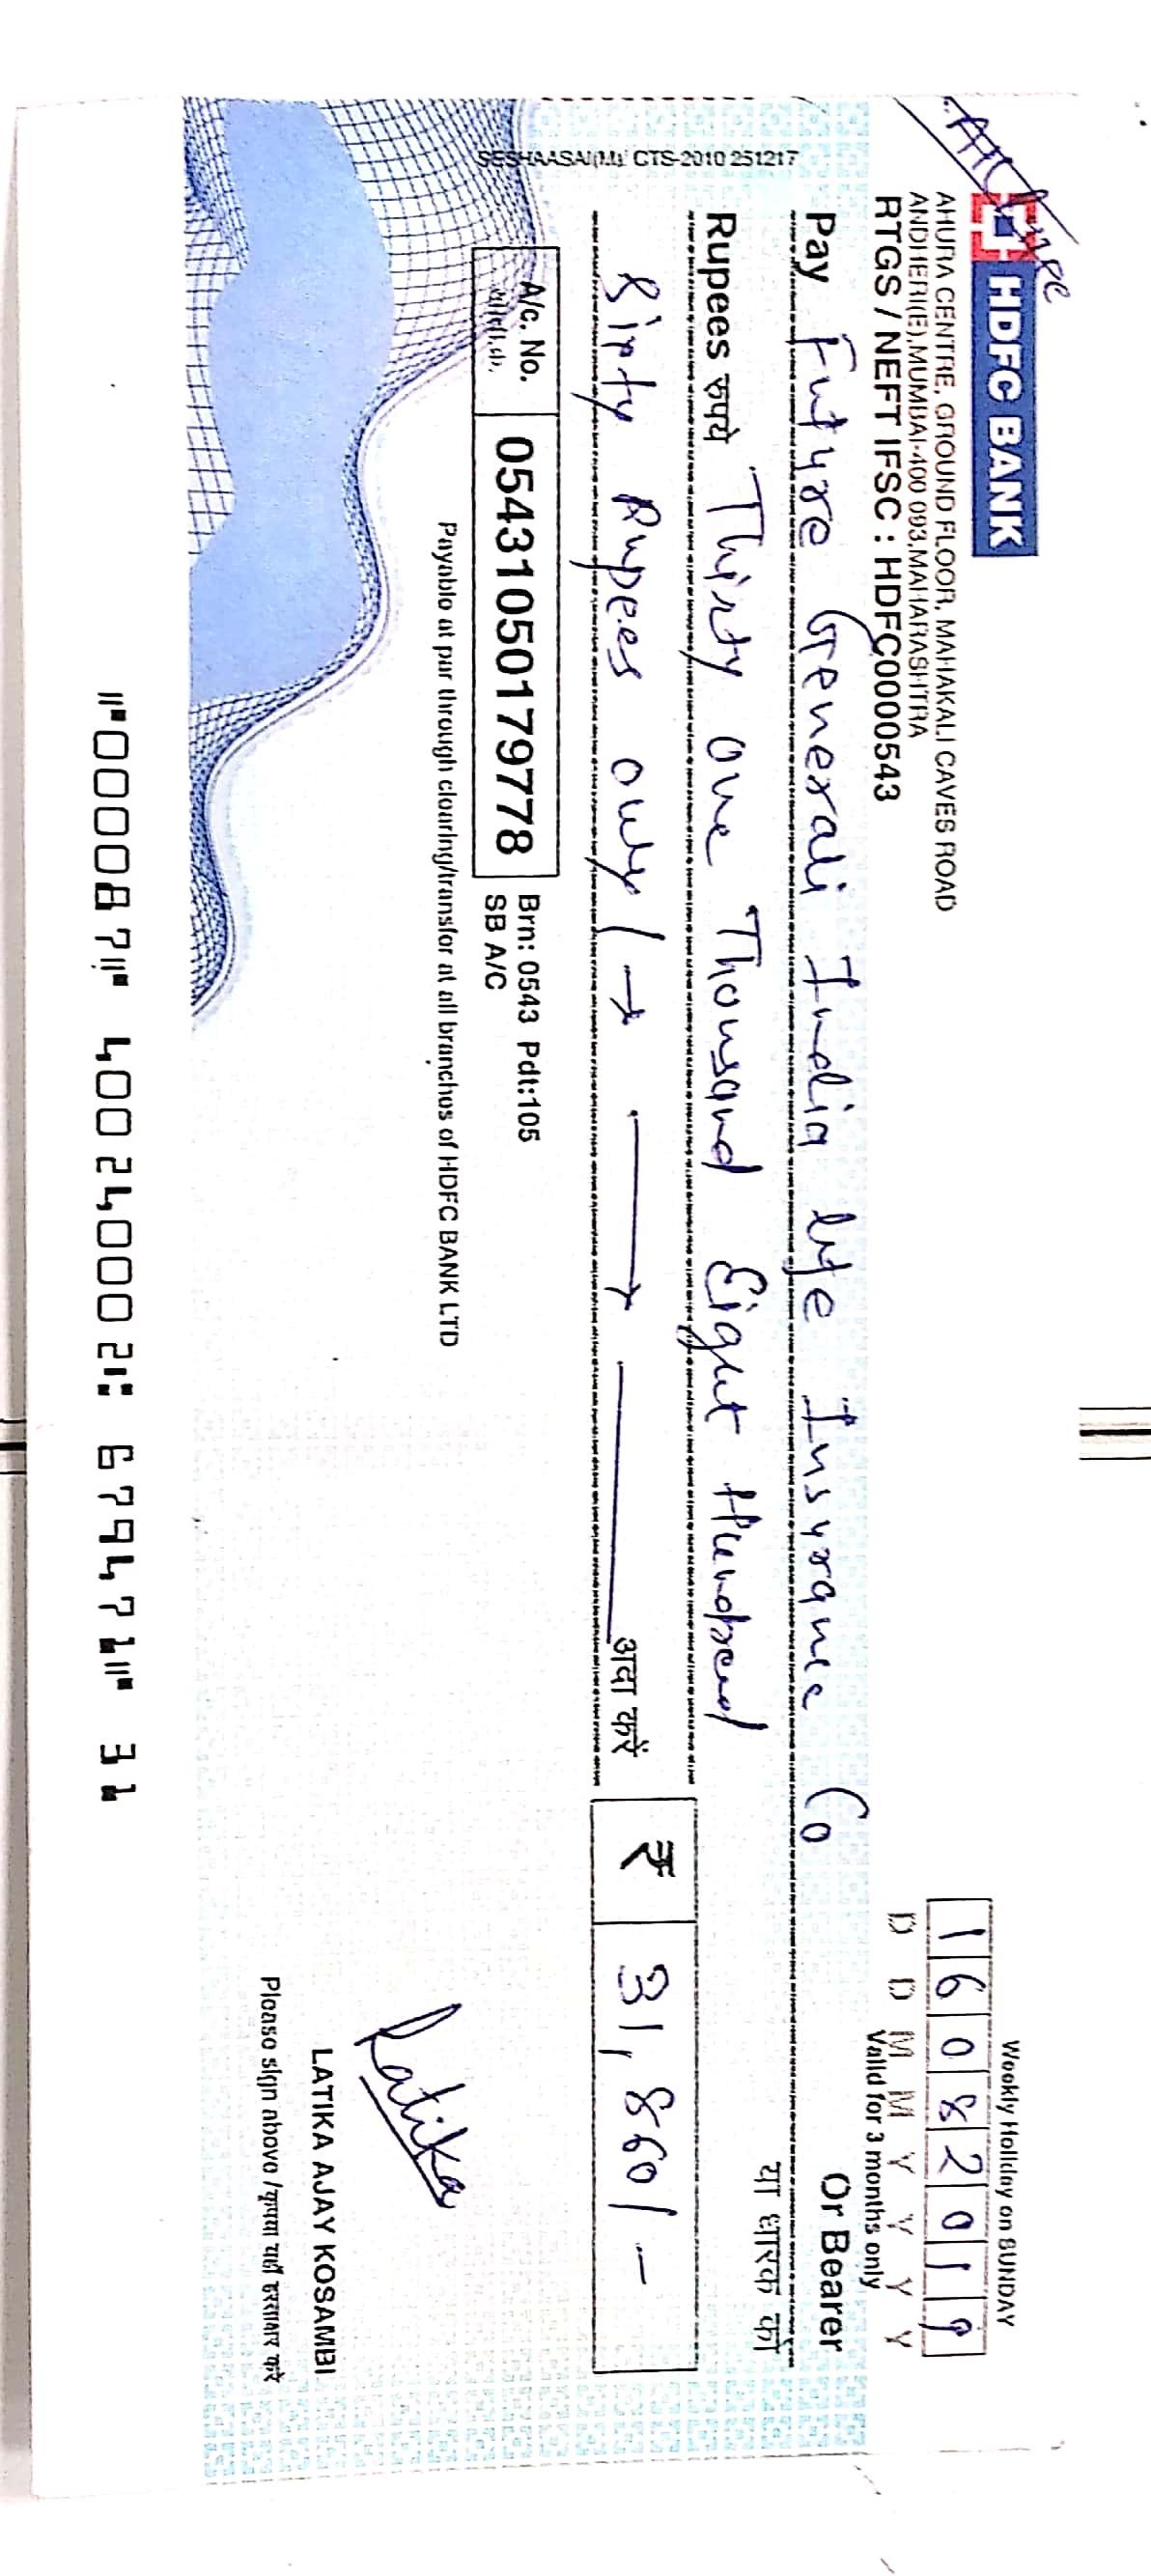 A/C Payee
HDFC BANK
AHURA CENTRE, GROUND FLOOR, MAHAKALI CAVES ROAD
ANDHERI(E),MUMBAI-400 093,MAHARASHTRA
RTGS / NEFT IFSC : HDFC0000543
Weekly Holiday on SUNDAY
16082019
D D M M Y Y Y Y
Valid for 3 months only
Pay Future Generali India life Insurance Co Or Bearer
या धारक को
Rupees रुपये Thirty one Thousand Eight Hundred
Sixty Rupees only/- अदा करें ₹ 31,860/-
A/c. No. 05431050179778 Brn: 0543 Pdt:105
SB A/C
Payable at par through clearing/transfer at all branches of HDFC BANK LTD
Latika
LATIKA AJAY KOSAMBI
Please sign above / कृपया यहाँ हस्ताक्षर करें
SESHAASAI(M)/ CTS-2010 251217
⑈000087⑈ 400240002⑆ 679471⑈ 31